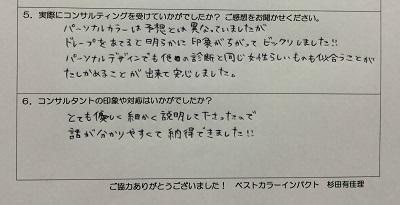 5．実際にコンサルティングを受けていかがでしたか？ ご感想をお聞かせください。
パーソナルカラーは予想とは異なっていましたが
ドレープをあてると明らかに印象がちがってビックリしました!!
パーソナルデザインでも他の診断と同じ女性らしいものも似合うことが
たしかめることが出来て安心しました。
6．コンサルタントの印象や対応はいかがでしたか？
とても優しく細かく説明して下さったので
話が分かりやすくて納得できました!!
ご協力ありがとうございました！ ベストカラーインパクト 杉田有佳理